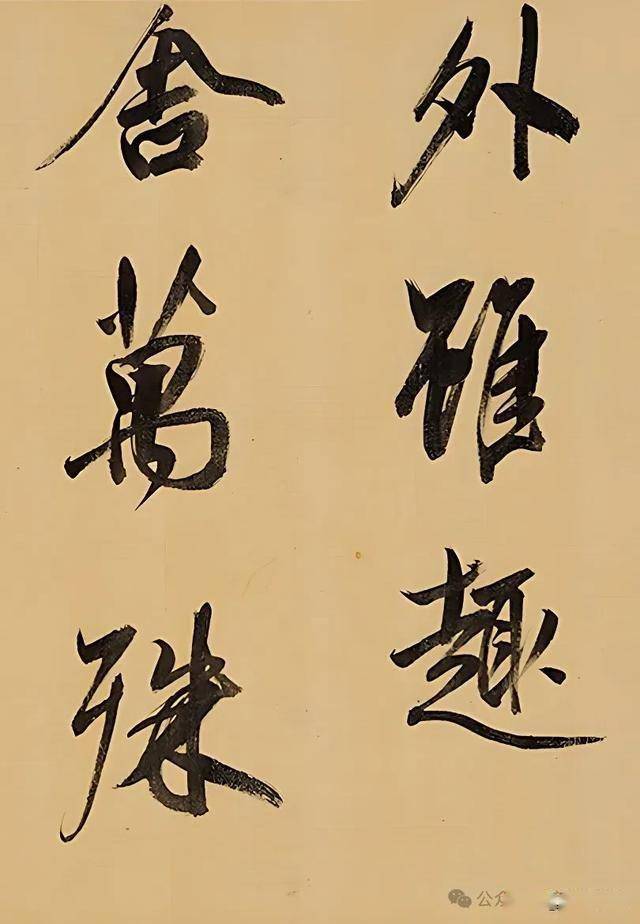 外雖趣
舍萬殊
公众